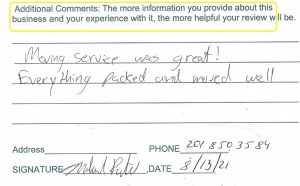 Additional Comments: The more information you provide about this
business and your experience with it, the more helpful your review will be.
Moving service was great!
Everything packed and moved well
Address PHONE 201 850 3584
SIGNATURE DATE 8/13/21